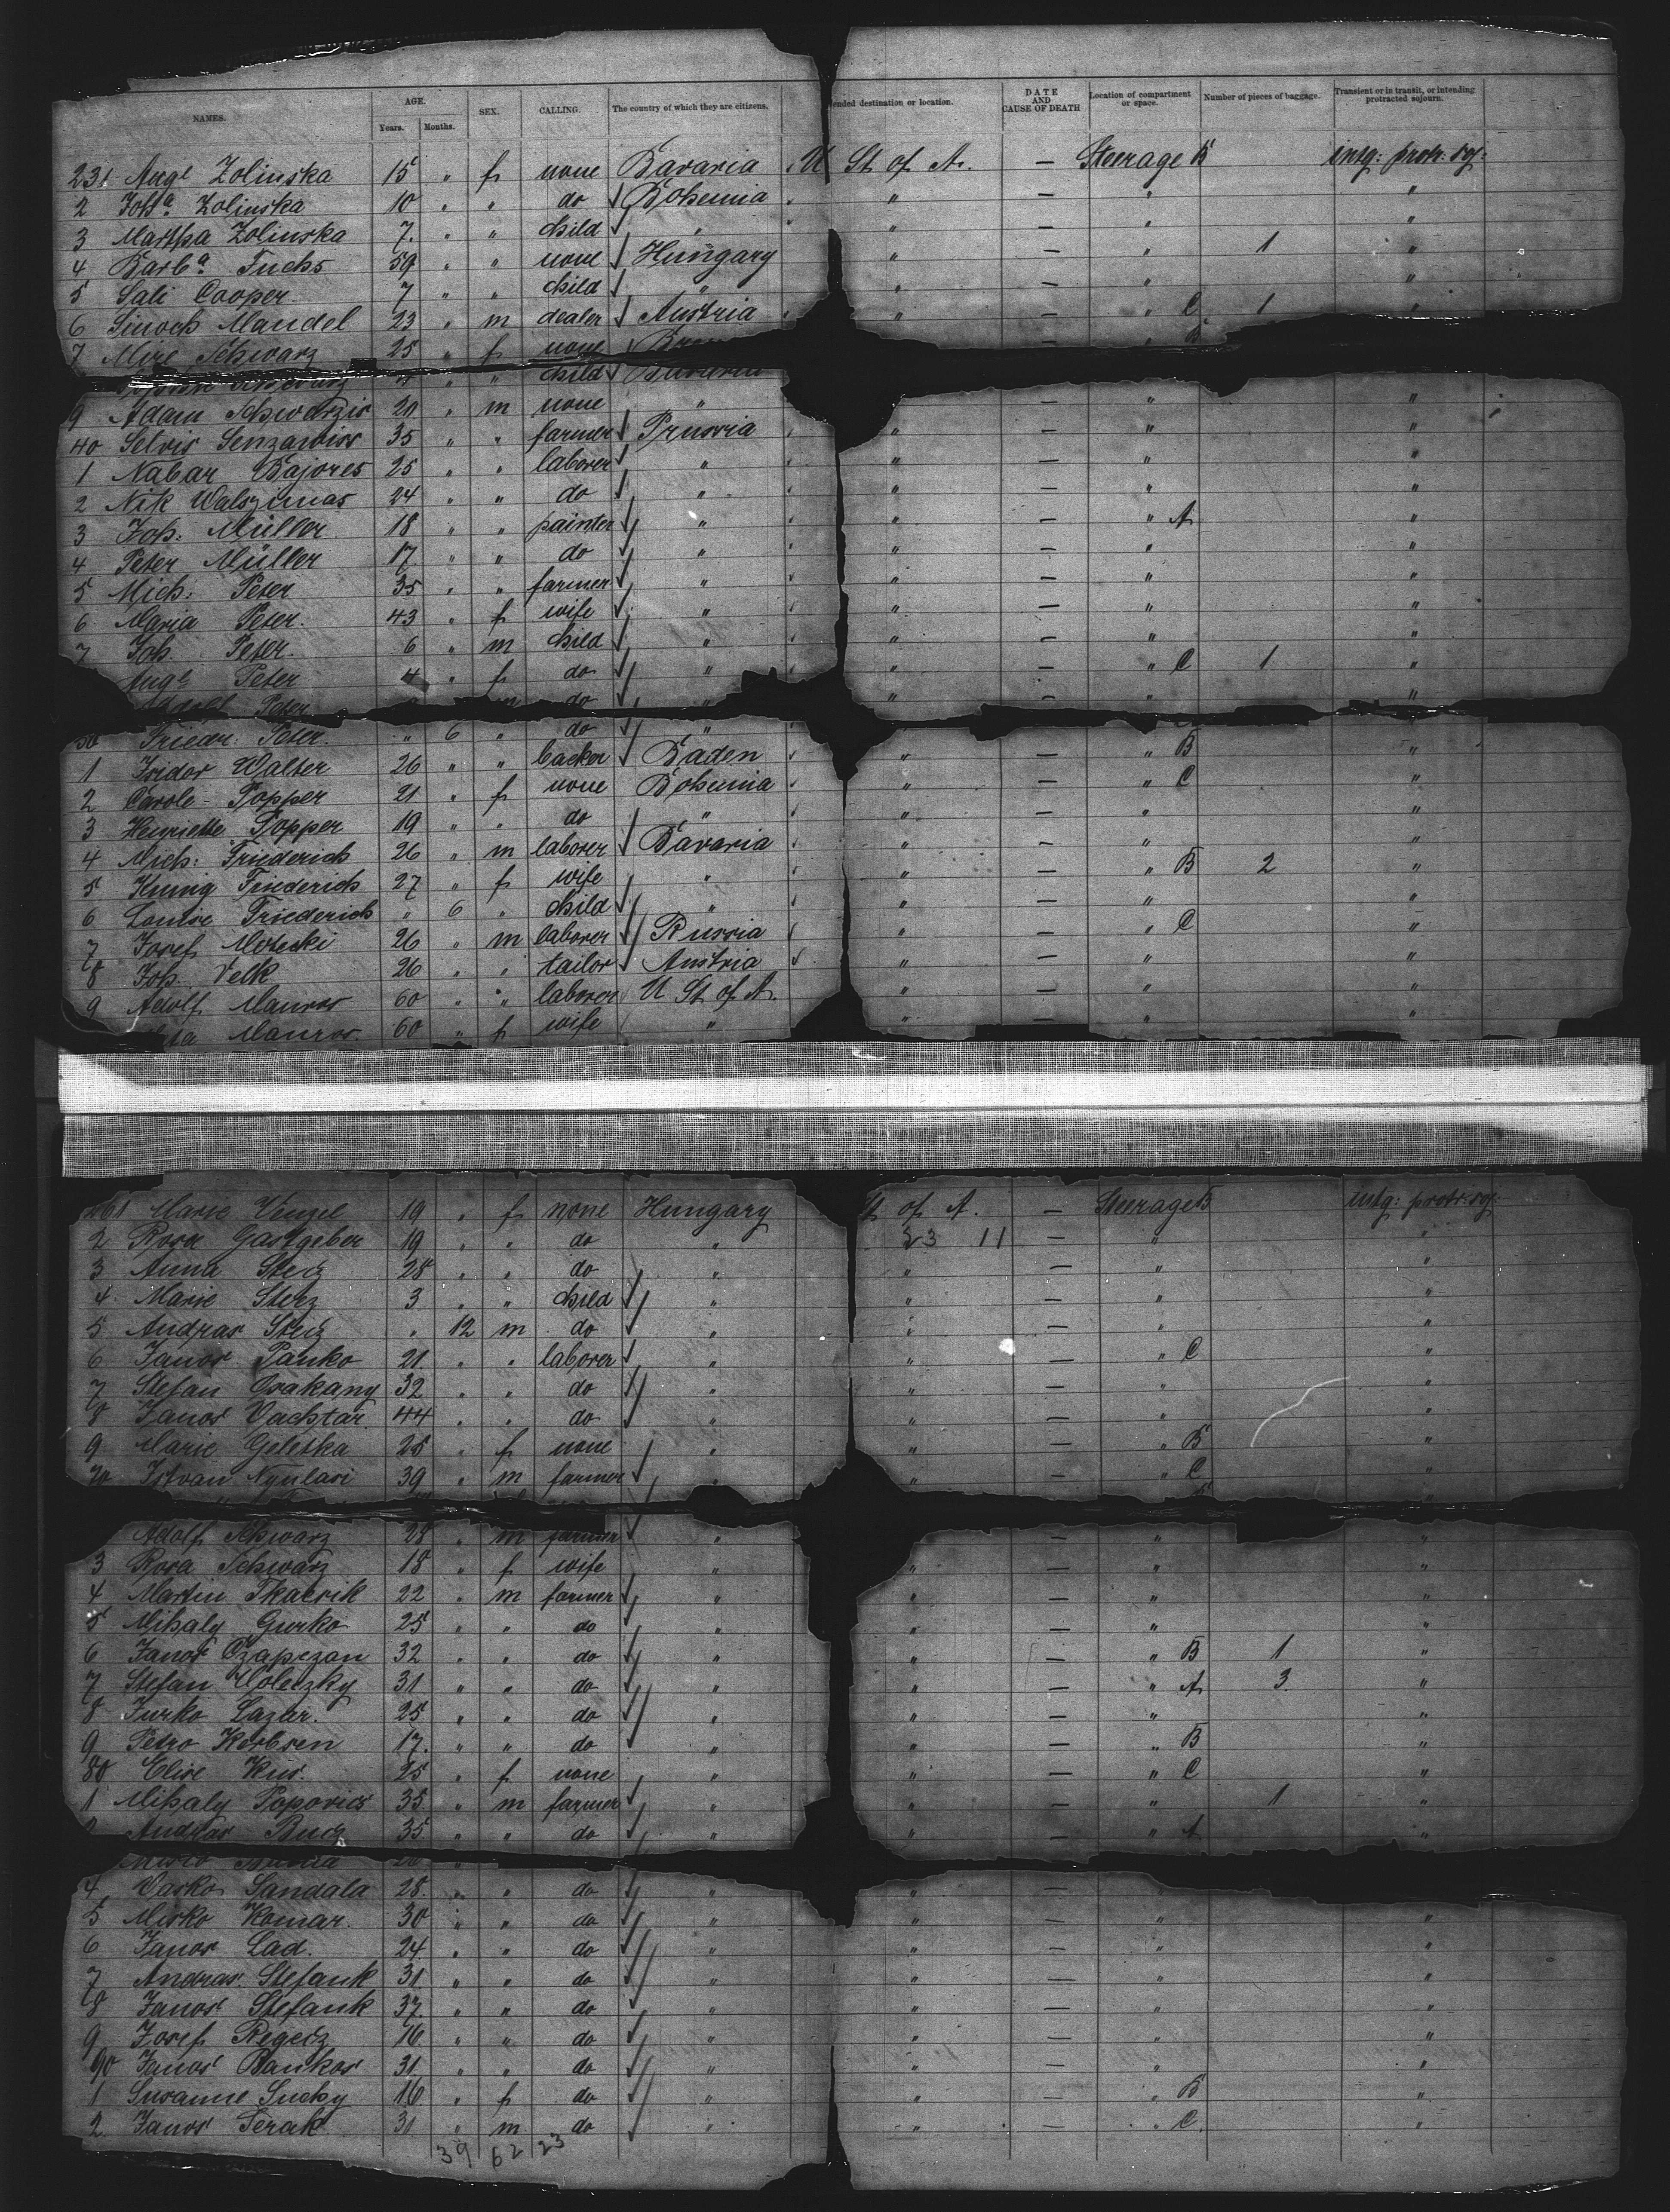 NAMES. AGE. Years. Months. SEX. CALLING. The country of which they are citizens. ended destination or location. DATE AND CAUSE OF DEATH Location of compartment or space. Number of pieces of baggage. Transient or in transit, or intending protracted sojourn.
231 Augt Zolinska 15 " f none Bavaria U St of A. — Steerage B intg: protr: soj:
2 Joha Zolinska 10 " " do Bohemia " — " "
3 Martha Zolinska 7. " " child " " — " "
4 Barba Fuchs 59 " " none Hungary " — " 1 "
5 Sali Cooper 7 " " child " " — " "
6 Sinoch Mandel 23 " m dealer Austria " — " C 1 "
7 Mire Schwarz 25 " f none —
child Bavaria
9 Adam Schwarzis 20 " m none " — " "
40 Selvis Senzawiss 35 " " farmer Prussia " — " "
1 Nabar Bajores 25 " " laborer " " — " "
2 Nik Walszimas 24 " " do " " — " "
3 Joh. Müller 18 " " painter " " — " A "
4 Peter Müller 17. " " do " " — " "
5 Mich: Peter 35 " " farmer " " — " "
6 Maria Peter. 43 " f wife " " — " "
7 Joh. Peter. 6 " m child " " — " "
Augt Peter 4 " f do " " — " C 1 "
Adolf Peter m do " " — " "
50 Friedr: Peter. " 6 " do "
1 Isidor Walter 26 " " backer Baden " — " B "
2 Carole Popper 21 " f none Bohemia " — " C "
3 Henriette Popper 19 " " do " " — " "
4 Mich: Friederich 26 " m laborer Bavaria " — " "
5 Kunig Friederich 27 " f wife " " — " B 2 "
6 Louise Friederich " 6 " child " " — " "
7 Josef Moteski 26 " m laborer Russia " — " C "
8 Joh. Velk 26 " " tailor Austria " — " "
9 Adolf Mauros 60 " " laborer U St of A. " — " "
Mauros. 60 " f wife " " — " "
461 Marie Venzel 19 " f none Hungary St of A. — Steerage B intg: protr: soj:
2 Rosa Gastgeber 19 " " do " 23 11 — " "
3 Anna Sterz 28 " " do " " — " "
4 Marie Sterz 3 " " child " " — " "
5 Andras Sterz " 12 m do " " — " "
6 Janos Panko 21. " " laborer " " — " C "
7 Stefan Osakany 32 " " do " " — " "
8 Janos Vachtar 44 " " do " " — " "
9 Marie Geletka 28 " f none " " — " B "
70 Istvan Nyulasi 39 " m farmer " " — " C "
Adolf Schwarz 24 " m farmer " — " "
3 Rosa Schwarz 18 " f wife " " — " "
4 Martin Tkacsik 22 " m farmer " " — " "
5 Mihaly Gurko 25 " " do " " — " "
6 Janos Czapczan 32 " " do " " — " B 1 "
7 Stefan Holeczky 31 " " do " " — " A 3 "
8 Jurko Lazar. 25 " " do " " — " "
9 Petro Kerbsen 17. " " do " " — " B "
80 Elise Kus. 25 " f none " " — " C "
1 Mihaly Popovics 35. " m farmer " " — " 1 "
Andras Bucz 35 " " do " " — " A "
4 Vasko Sandala 28. " " do " " — " "
5 Misko Komar. 30 " " do " " — " "
6 Janos Lad. 24 " " do " " — " "
7 Andras. Stefank 31 " " do " " — " "
8 Janos Stefank 37 " " do " " — " "
9 Josef Regecz 16 " " do " " — " "
90 Janos Bankos 31 " " do " " — " "
1 Susanne Sucky 16 " f do " " — " B "
2 Janos Serak 31 " m do " " — " C. "
39 62 23